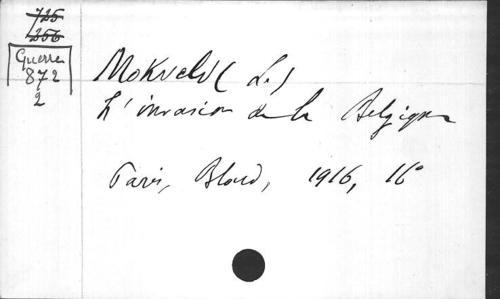 725
1256
Guerre
872
2
Mokveld (L.)
L'invasion de la Belgique
Paris, Bloud, 1916, 16°